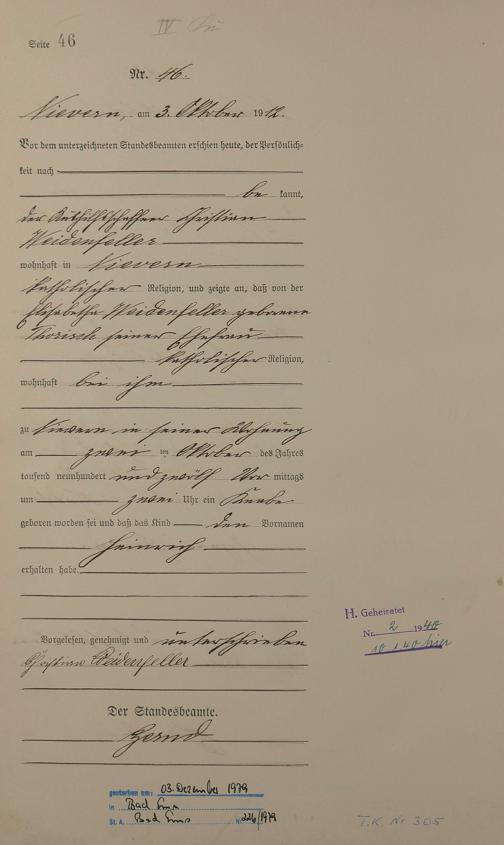 Seite 46
Nr. 46.
Nievern, am 3. Oktober 1912.
Vor dem unterzeichneten Standesbeamten erschien heute, der Persönlich-
keit nach
be kannt,
der Christian
Weidenfeller
wohnhaft in Nievern
katholischer Religion, und zeigte an, daß von der
Elisabetha Weidenfeller geborene
seiner Ehefrau
katholischer Religion,
wohnhaft bei ihm
zu Nievern in seiner Wohnung
am zwei ten Oktober des Jahres
tausend neunhundert und zwölf Vor mittags
um zwei Uhr ein Knabe
geboren worden sei und daß das Kind den Vornamen
Heinrich
erhalten habe.
Vorgelesen, genehmigt und unterschrieben
Christian Weidenfeller
Der Standesbeamte.
H. Geheiratet
Nr. 2 1940
hier
gestorben am: 03. Dezember 1979
in Bad Ems
St. A. Bad Ems Nr. 226/1979
T.K. Nr 305